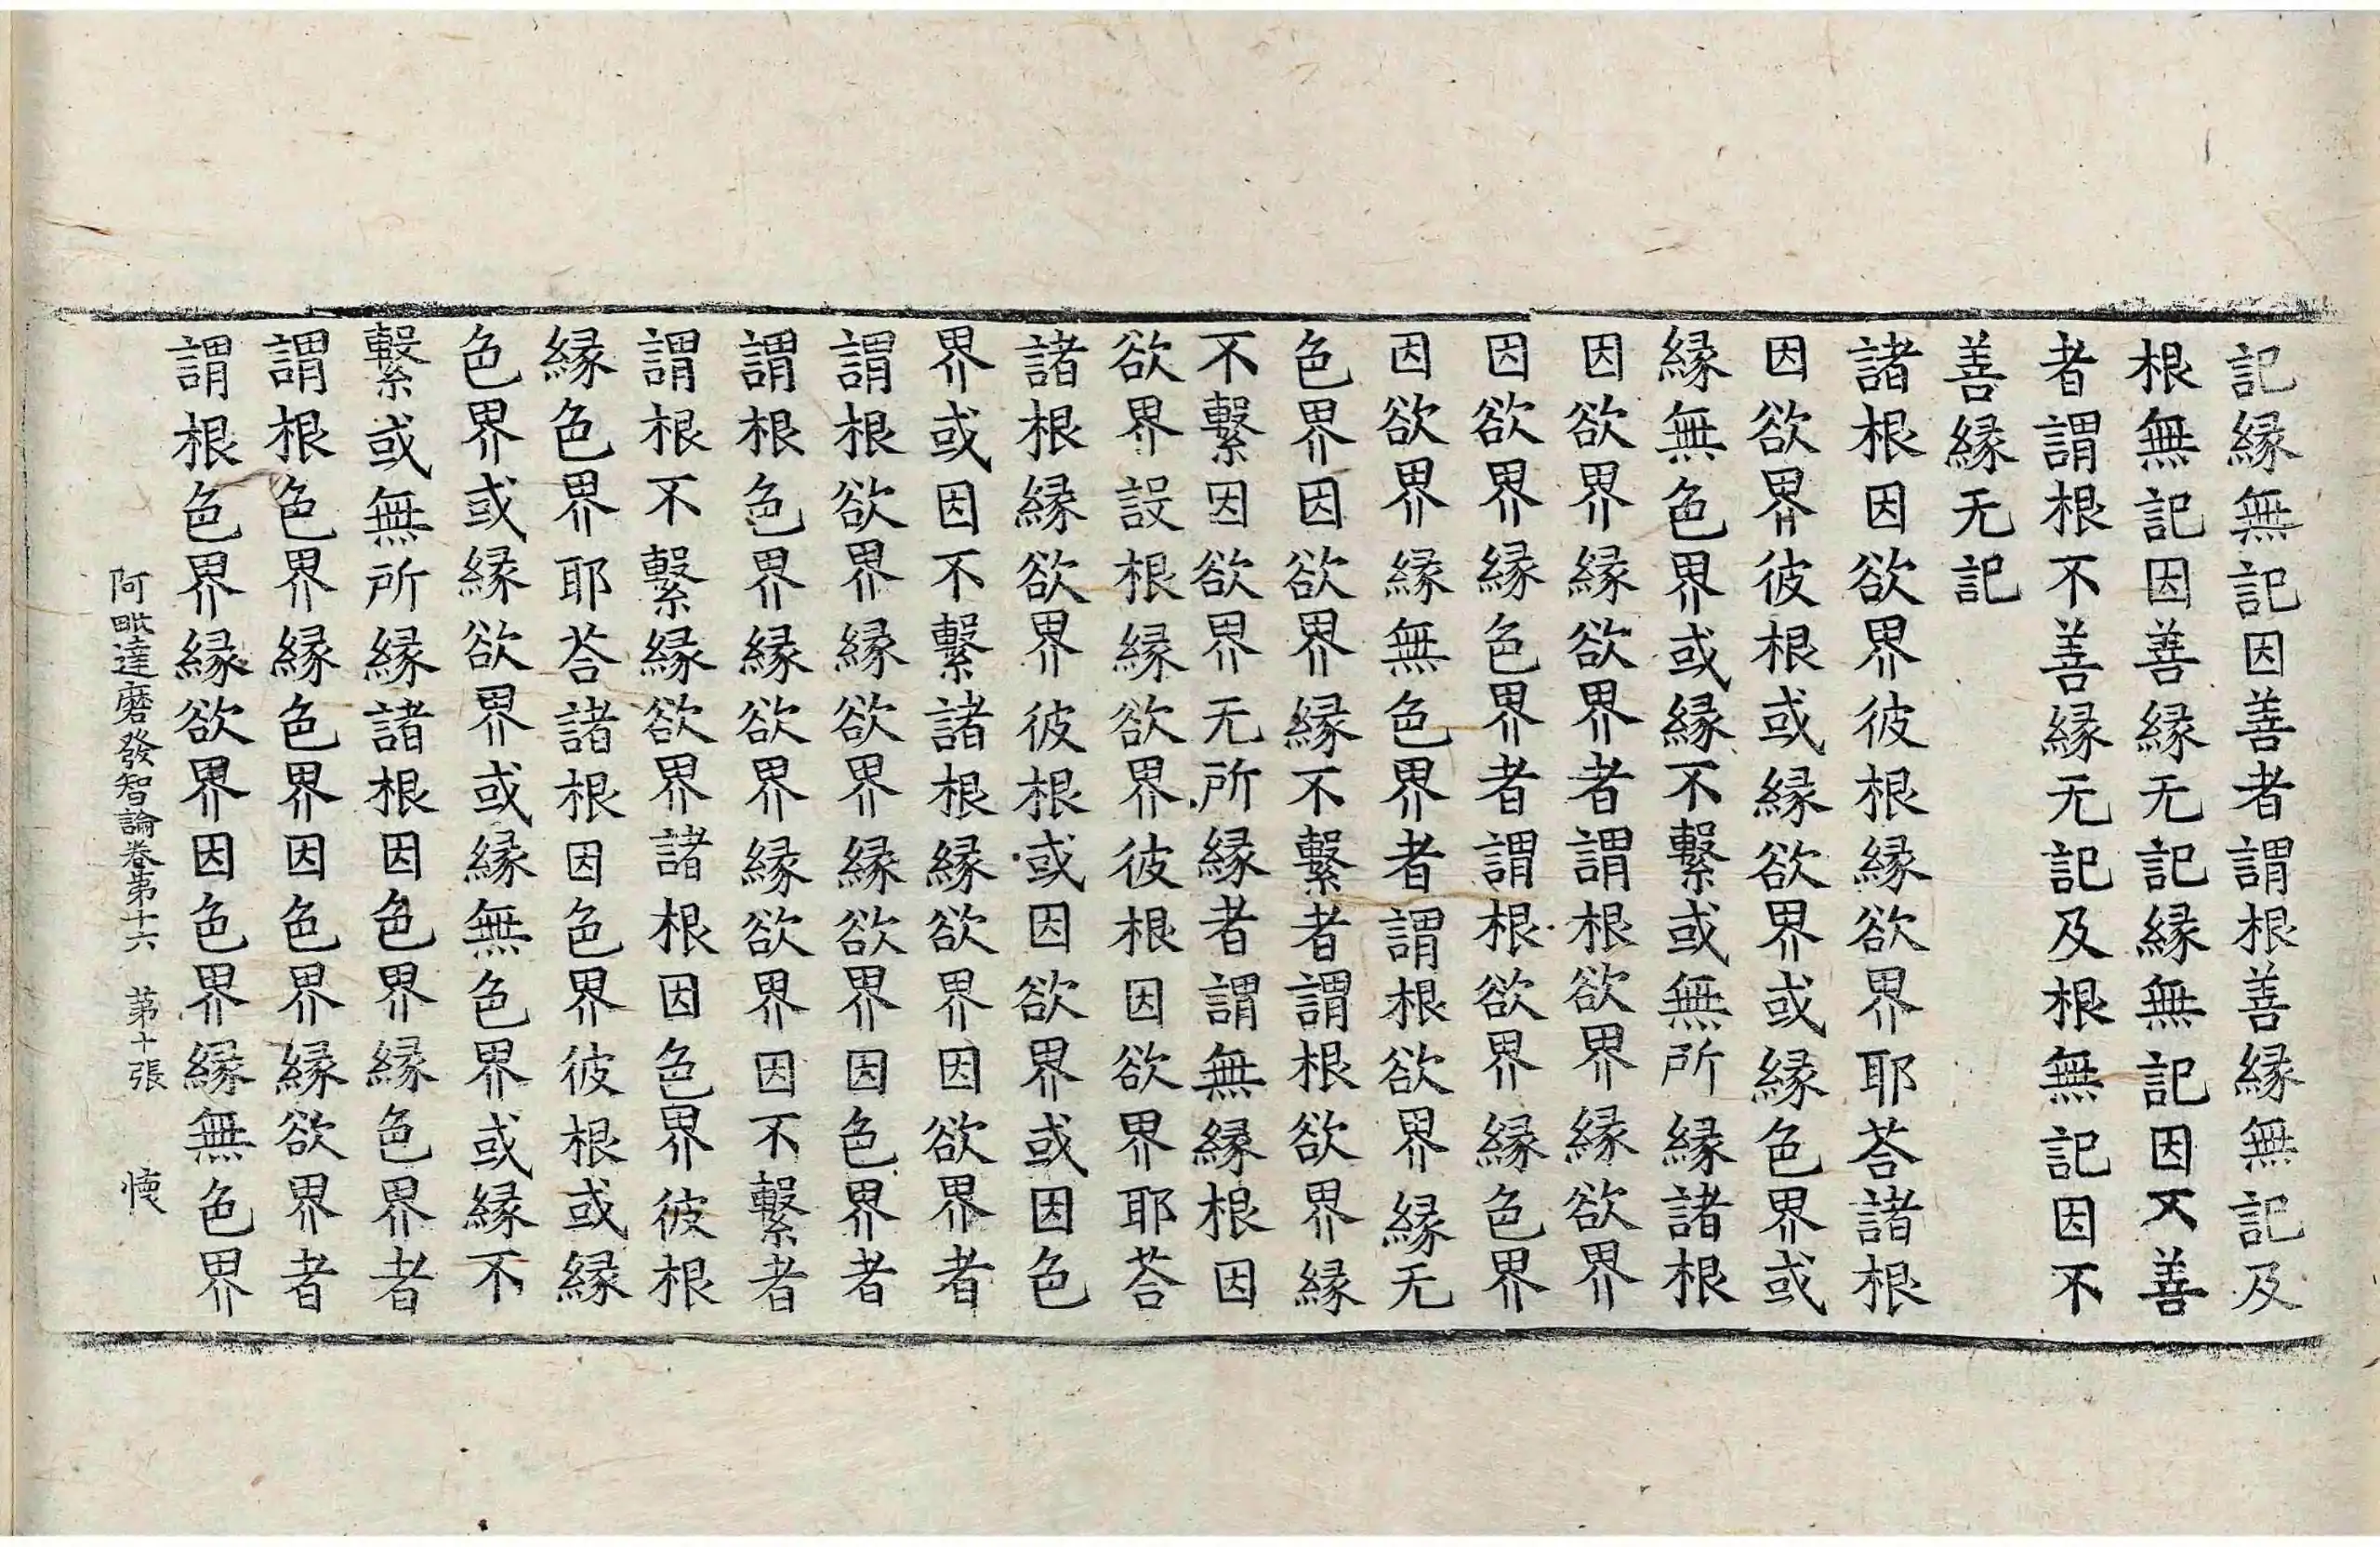 記緣無記因善者謂根善緣無記及
根無記因善緣无記緣無記因不善
者謂根不善緣无記及根無記因不
善緣无記
諸根因欲界彼根緣欲界耶荅諸根
因欲界彼根或緣欲界或緣色界或
緣無色界或緣不繫或無所緣諸根
因欲界緣欲界者謂根欲界緣欲界
因欲界緣色界者謂根欲界緣色界
因欲界緣無色界者謂根欲界緣无
色界因欲界緣不繫者謂根欲界緣
不繫因欲界无所緣者謂無緣根因
欲界設根緣欲界彼根因欲界耶荅
諸根緣欲界彼根或因欲界或因色
界或因不繫諸根緣欲界因欲界者
謂根欲界緣欲界緣欲界因色界者
謂根色界緣欲界緣欲界因不繫者
謂根不繫緣欲界諸根因色界彼根
緣色界耶荅諸根因色界彼根或緣
色界或緣欲界或緣無色界或緣不
繫或無所緣諸根因色界緣色界者
謂根色界緣色界因色界緣欲界者
謂根色界緣欲界因色界緣無色界
阿毗達磨發智論卷第十六 第十張 懐